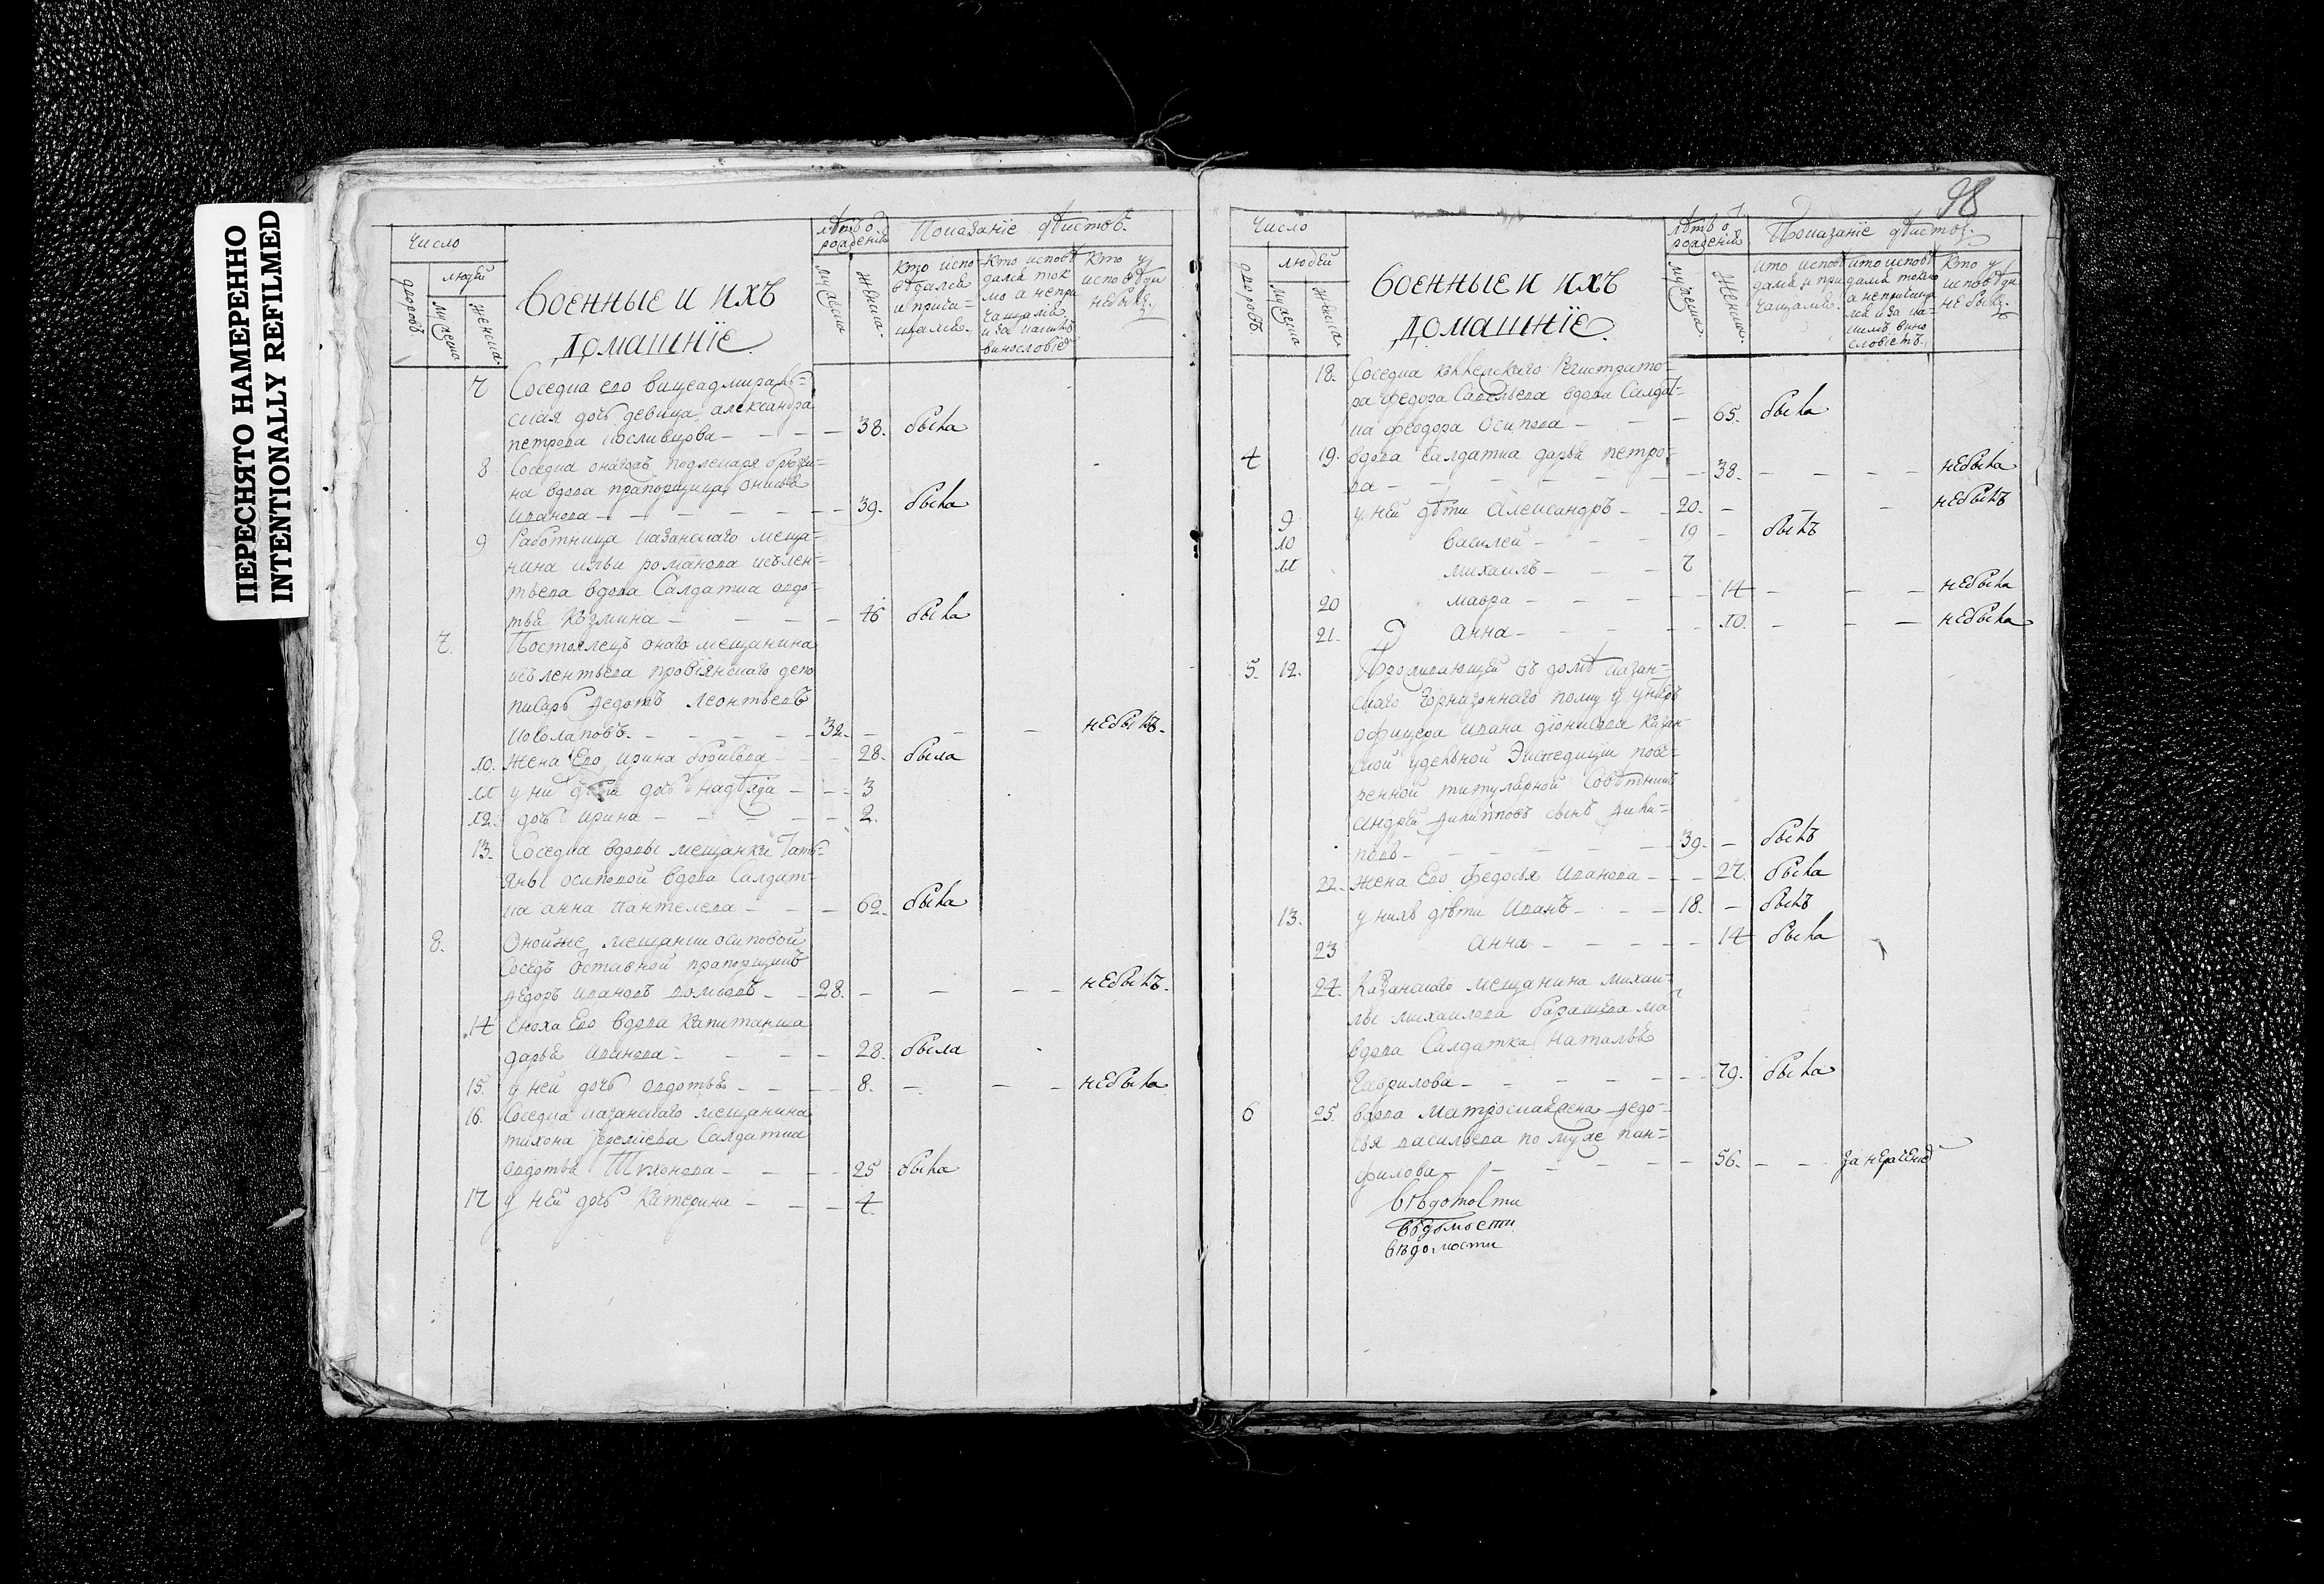 ПЕРЕСНЯТО НАМЕРЕННО
INTENTIONALLY REFILMED
Число
людей
дворовъ
мужеска
женска
военныЕ и ихъ
домашніЕ
лѣтъ о
рожденія
мужеска
женска
Показаніе дѣйствъ
Кто испо
вѣдался
и прича-
щался
Кто исповѣ
дался ток
мо а непри
чащался
Кто у
исповѣди
небылъ
7 Соседка его вицеадмираль-
ская дочь девица александра
петрова 38. была
8 Соседка подлекаря
на вдова прапорщица
иванова 39. была
9 Работница казанскаго меща-
нина ильи романова
вдова Салдатка овдо-
тья Козмина 46 была
7. Постоялецъ онаго мещанина
провіянскаго депо
писарь Федотъ Леонтьевъ
32. небылъ.
10. Жена Его ирина борисова 28. была
11 у ни дѣти дочь надѣжда 3
12. дочь ирина 2.
13. Соседка вдовы мещанки Тать-
яны осиповой вдова Салдат-
ка анна Пантелева 62. была
8. Оной же мещанки осиповой
соседъ отставной прапорщикъ
Федоръ ивановъ 28. небылъ.
14 Сноха Его вдова Капитанша
дарья иванова 28. была
15. у ней дочь овдотья 8. небыла
16. Соседка казанскаго мещанина
тихона Еремиева Салдатка
овдотья Тихонова 25 была
17 у ней дочь Катерина 4
98
Число
людей
дворовъ
мужеска
женска
военныЕ и ихъ
домашніЕ
лѣтъ о
рожденія
мужеска
женска
Показаніе дѣйствъ
кто исповѣ
дался и при
чащался
кто исповѣ
дался токмо
а непричаща
лся и за ка-
кимъ вино
словіемъ
Кто у
исповѣди
небылъ
18. Соседка Регистрато-
ра федора Савельева вдова Салдат-
ка феодора Осипова 65. была
4 19. вдова Салдатка дарья петро-
ва 38. небыла
9 у ней дѣти Александръ 20. небылъ
10 василей 19 былъ
11 михаилъ 7
20 мавра 14 небыла
21. анна 10. небыла
5. 12. Проживающей въ домѣ казан-
скаго Гарнизоннаго полку унтеръ
офицера ивана дионисова Казан-
ской удельной Экспедиціи пове-
ренной титулярной совѣтникъ
андрей филиповъ сынъ фили-
повъ 39. былъ
22. Жена Его федосья иванова 27. была
13. у нихъ дѣти иванъ 18. былъ
23 анна 14 была
24. Казанскаго мещанина михаи-
лы михаилова ма
вдова Салдатка Наталья
Гаврилова 79. была
6 25. вдова матроска Федо-
сья васильева по муже пан-
филова 56. за нераченіе
вѣдомости
вѣдомости
вѣдомости